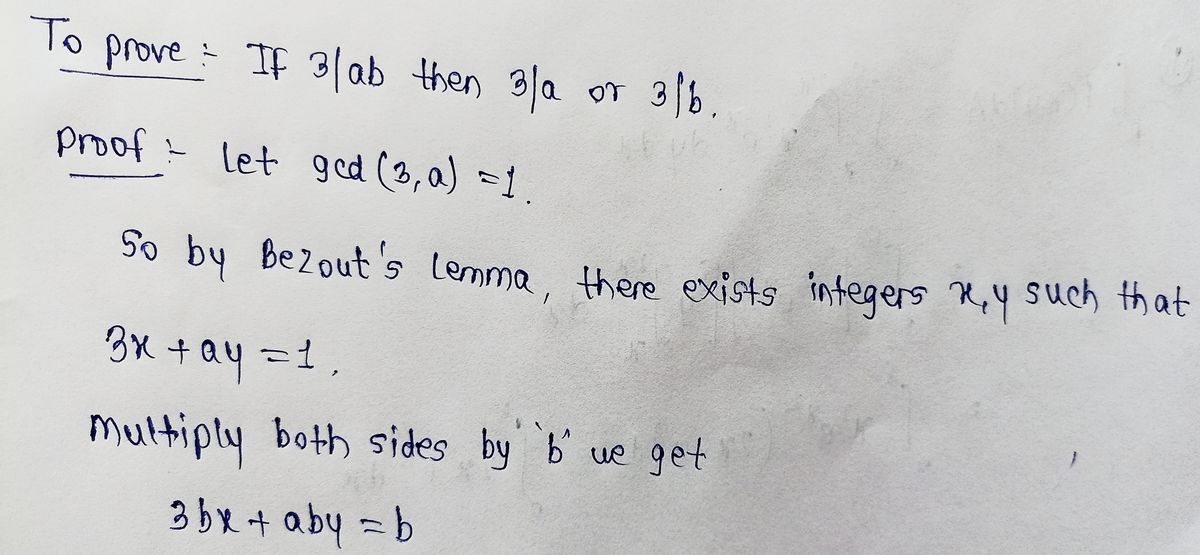 To prove :- If 3|ab then 3|a or 3|b.
Proof :- Let gcd (3, a) = 1.
So by Bezout's Lemma, there exists integers x, y such that
3x + ay = 1,
Multiply both sides by 'b' we get
3bx + aby = b